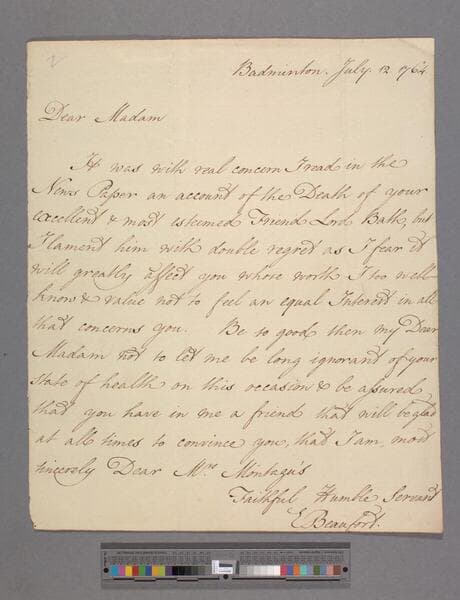 2
Badminton. July. 12 1764
Dear Madam
It was with real concern I read in the
News Paper an account of the Death of your
excellent & most esteemed Friend Lord Bath, but
I lament him with double regret as I fear it
will greatly affect you whose worth I too well
know & value not to feel an equal Interest in all
that concerns you. Be so good then my Dear
Madam not to let me be long ignorant of your
state of health on this occasion & be assured
that you have in me a friend that will be glad
at all times to convince you, that I am, most
sincerely Dear Mrs Montagu's
Faithful Humble Servant
E Beaufort.